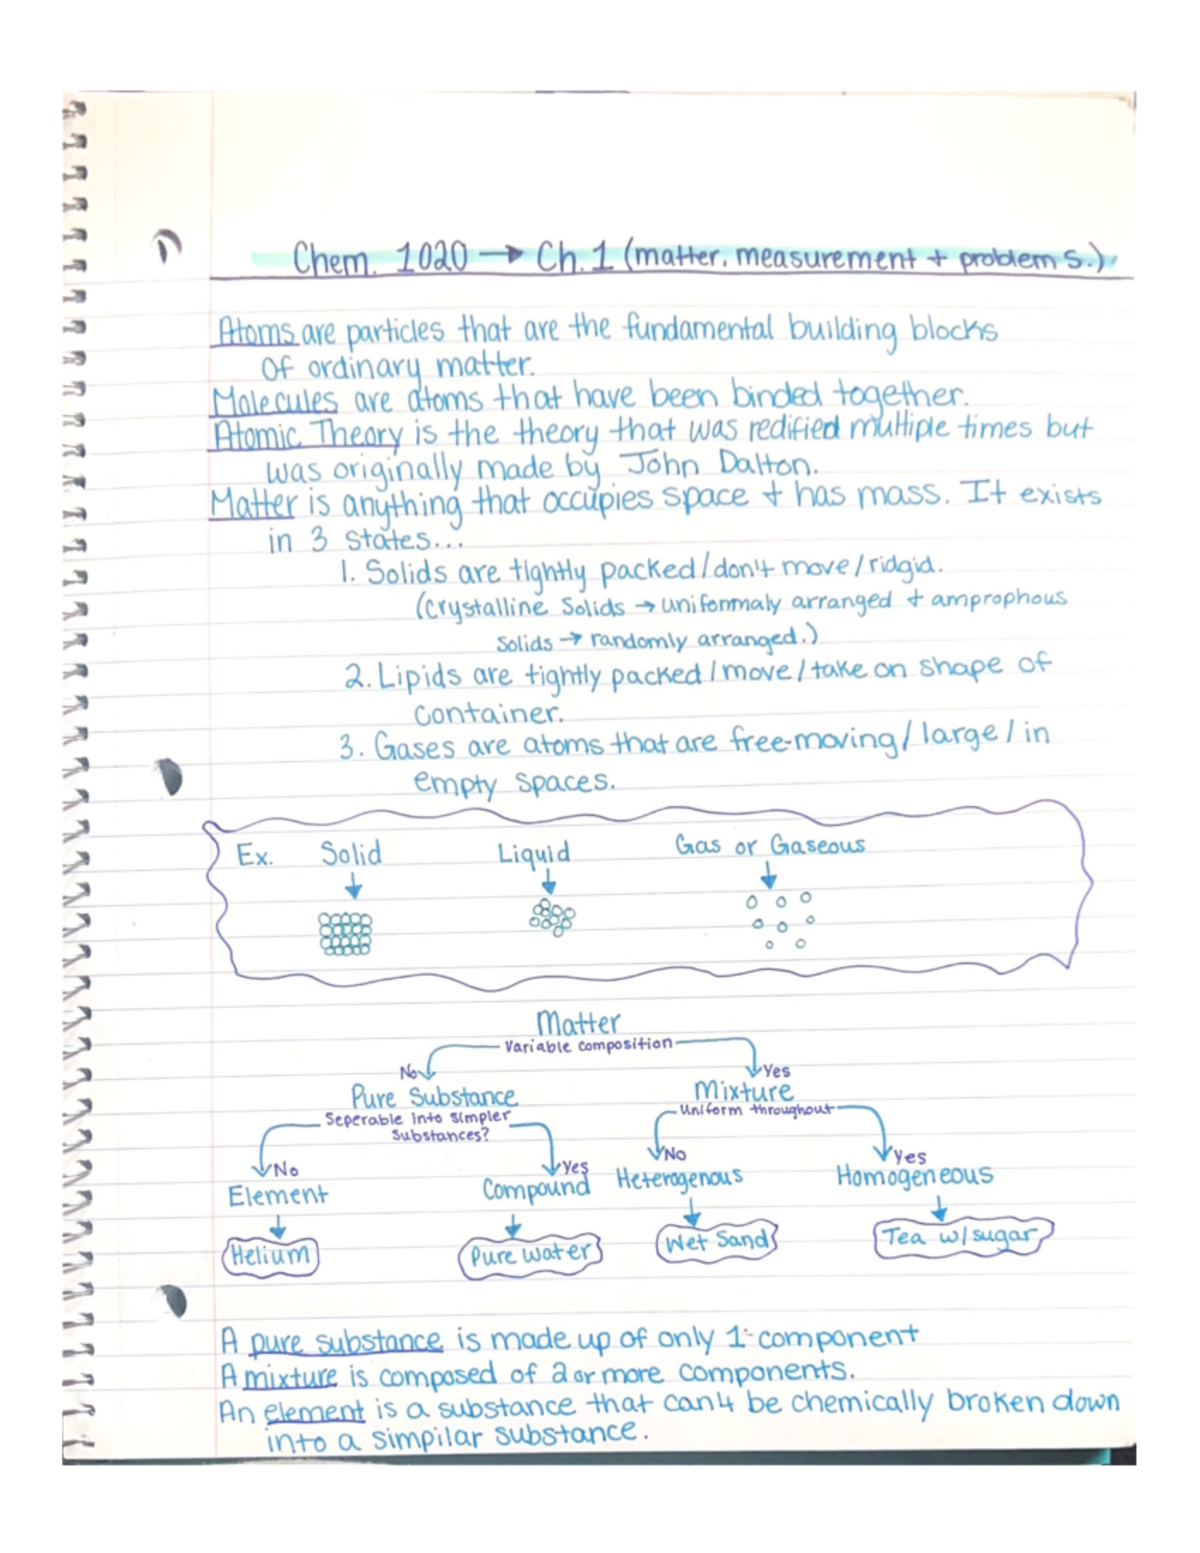 Chem. 1020 → Ch. 1 (matter, measurement + problem s.)
Atoms are particles that are the fundamental building blocks
Of ordinary matter.
Molecules are atoms that have been binded together.
Atomic Theory is the theory that was redified multiple times but
was originally made by John Dalton.
Matter is anything that occupies space + has mass. It exists
in 3 states...
1. Solids are tightly packed/don't move/ridgid.
(Crystalline Solids → uniformaly arranged + amprophous
Solids → randomly arranged.)
2. Lipids are tightly packed/move/take on shape of
Container.
3. Gases are atoms that are free-moving/large/in
empty spaces.
Ex. Solid Liquid Gas or Gaseous
Matter
Variable composition
No Yes
Pure Substance Mixture
Seperable into simpler Uniform throughout
Substances?
No Yes No Yes
Element Compound Heterogenous Homogeneous
Helium Pure water Wet Sand Tea w/sugar
A pure substance is made up of only 1 component
A mixture is composed of 2 or more components.
An element is a substance that can't be chemically broken down
into a simpilar substance.